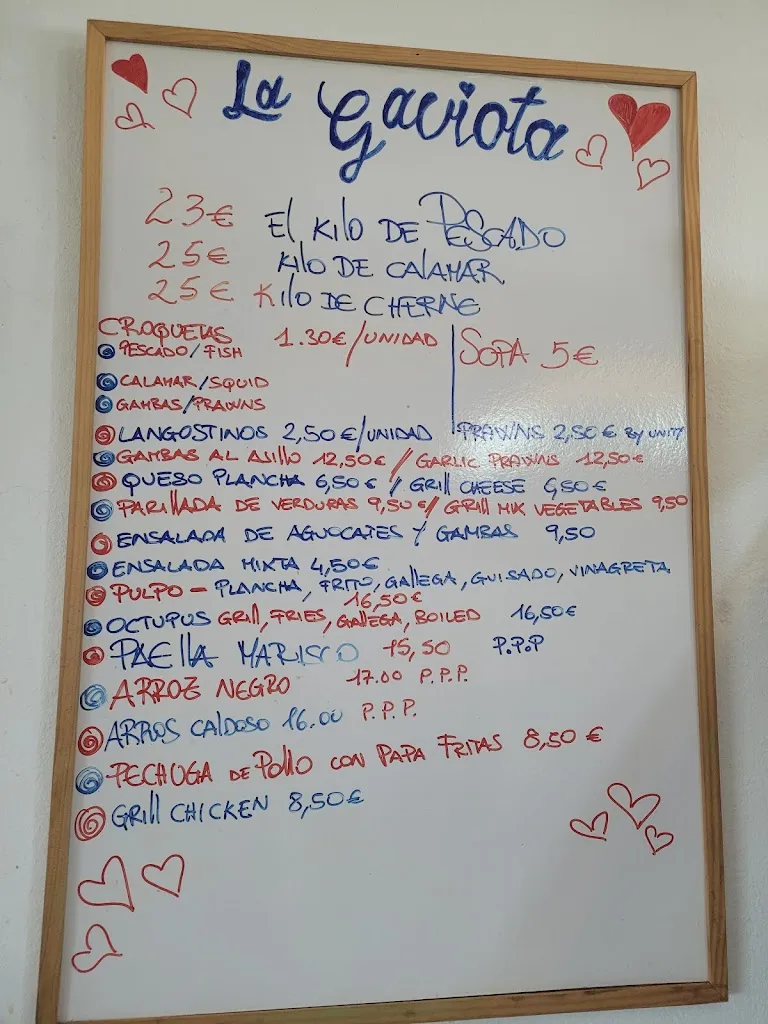 La Gaviota
23€ El Kilo DE PESCADO
25€ KILO DE CALAMAR
25€ KILO DE CHERNE
CROQUETAS 1.30€/UNIDAD
PESCADO/FISH
SOPA 5€
CALAMAR/SQUID
GAMBAS/PRAWNS
LANGOSTINOS 2,50€/UNIDAD PRAWNS 2,50€ By UNITY
GAMBAS AL AJILLO 12,50€ / GARLIC PRAWNS 12,50€
QUESO PLANCHA 6,50€ / GRill CHEESE 6,50€
PARILLADA DE VERDURAS 9,50€/ GRILL MIX VEGETABLES 9,50
ENSALADA DE AGUOCATES Y GAMBAS 9,50
ENSALADA MIXTA 4,50€
PULPO - PLANCHA, FRITO, GALLEGA, GUISADO, VINAGRETA
16,50€
OCTUPUS GRILL, FRIES, GALLEGA, BOILED 16,50€
PAELLA MARISCO 15,50 P.P.P
ARROZ NEGRO 17.00 P.P.P.
ARROS CALDOSO 16.00 P.P.P.
PECHUGA DE POLLO CON PAPA FRITAS 8,50€
GRILL CHICKEN 8,50€